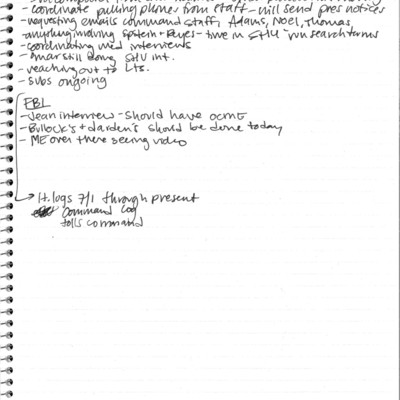 - coordinate pulling phones from staff - will send pres notices
- requesting emails command staff, Adams, Noel, Thomas,
anything involving Epstein + Reyes - time in SHU - run search terms
- coordinating med interviews
- Omar still doing SHU int.
- reaching out to Lts.
- subs ongoing
FBI
- Jean interview - should have
- Bullock's + darden's should be done today
- ME over there seeing video
→ Lt. logs 7/1 through present
command log
tolls command